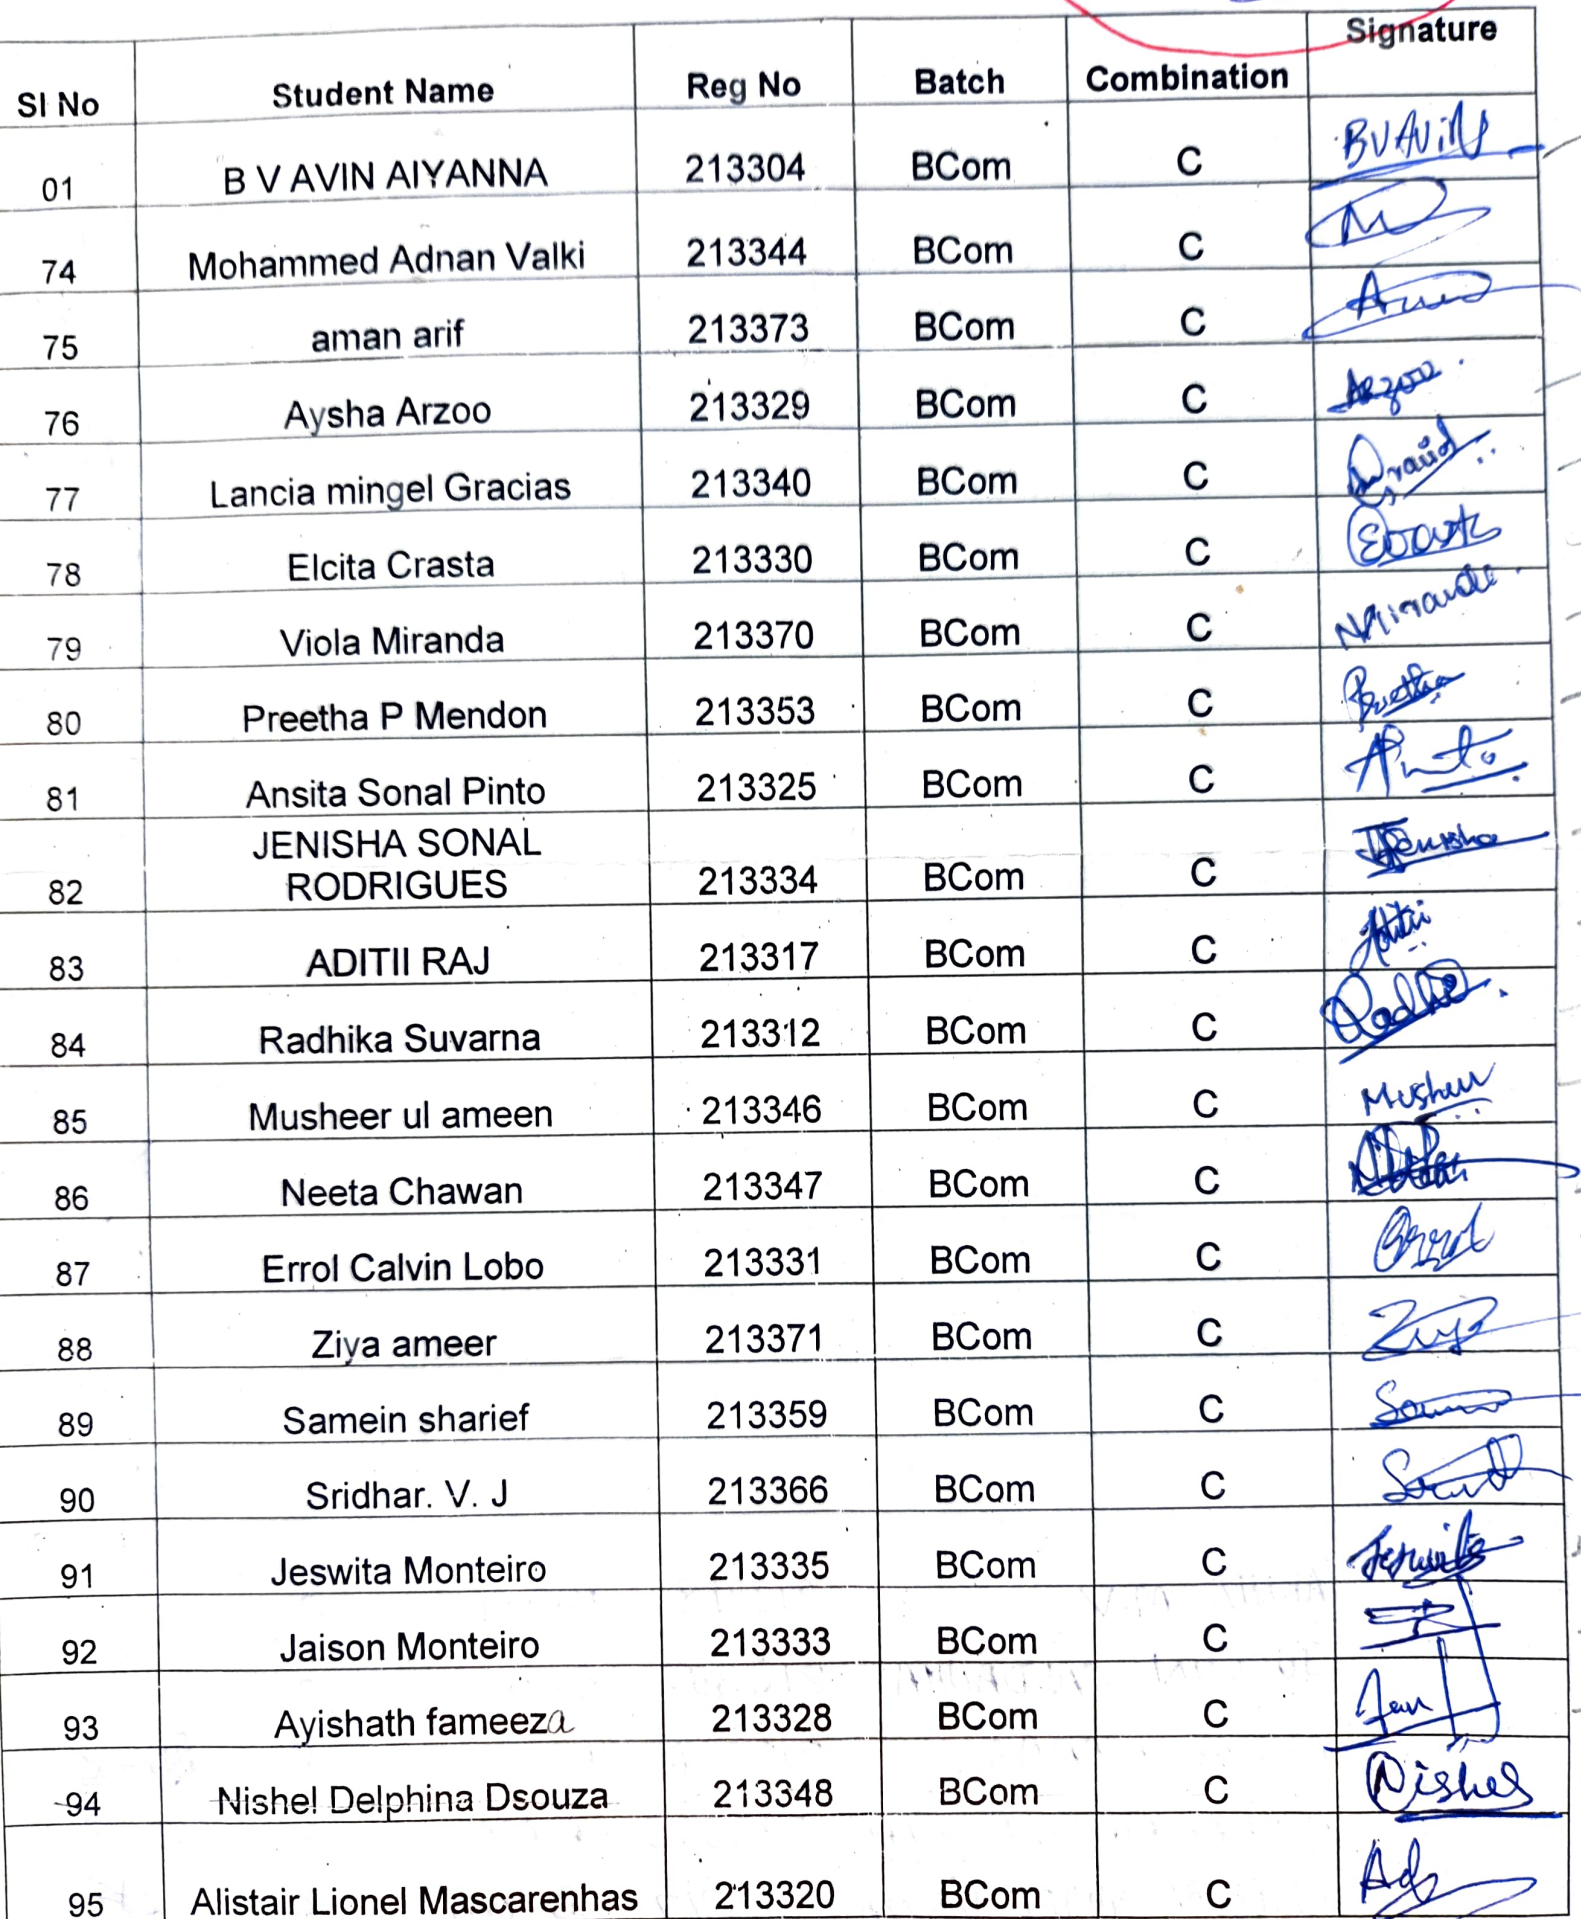 Signature
Sl No Student Name Reg No Batch Combination
01 B V AVIN AIYANNA 213304 BCom C BVAvin
74 Mohammed Adnan Valki 213344 BCom C
75 aman arif 213373 BCom C
76 Aysha Arzoo 213329 BCom C Arzoo.
77 Lancia mingel Gracias 213340 BCom C
78 Elcita Crasta 213330 BCom C
79 Viola Miranda 213370 BCom C
80 Preetha P Mendon 213353 BCom C Preetha
81 Ansita Sonal Pinto 213325 BCom C APinto
JENISHA SONAL
82 RODRIGUES 213334 BCom C Jenisha
83 ADITII RAJ 213317 BCom C
84 Radhika Suvarna 213312 BCom C
85 Musheer ul ameen 213346 BCom C
86 Neeta Chawan 213347 BCom C
87 Errol Calvin Lobo 213331 BCom C Errol
88 Ziya ameer 213371 BCom C Ziya
89 Samein sharief 213359 BCom C
90 Sridhar. V. J 213366 BCom C
91 Jeswita Monteiro 213335 BCom C Jeswita
92 Jaison Monteiro 213333 BCom C
93 Ayishath fameeza 213328 BCom C
94 Nishel Delphina Dsouza 213348 BCom C Nishel
95 Alistair Lionel Mascarenhas 213320 BCom C